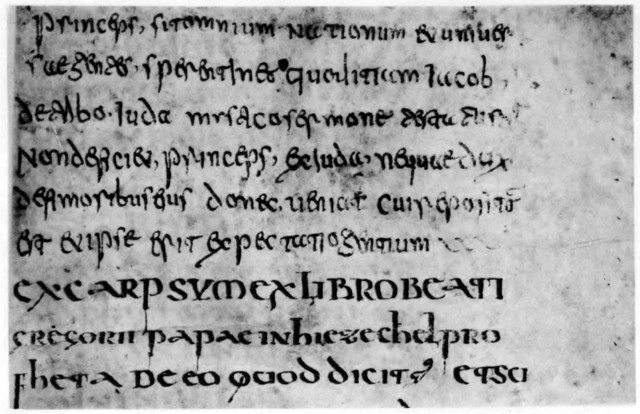 princeps, sit omnium nationum et univer
sae gentes, sperent in eo quod etiam iacob
de iuda sermone
Non deficiet, princeps, de iuda, neque dux
de femoribus eius donec ueniat cui repositū
est et ipse erit expectatio gentium
EXCARPSUM EX LIBRO BEATI
GREGORII PAPAE IN hIEZEChEL PRO
PhETA DE EO QUOD DICIT ET SCI